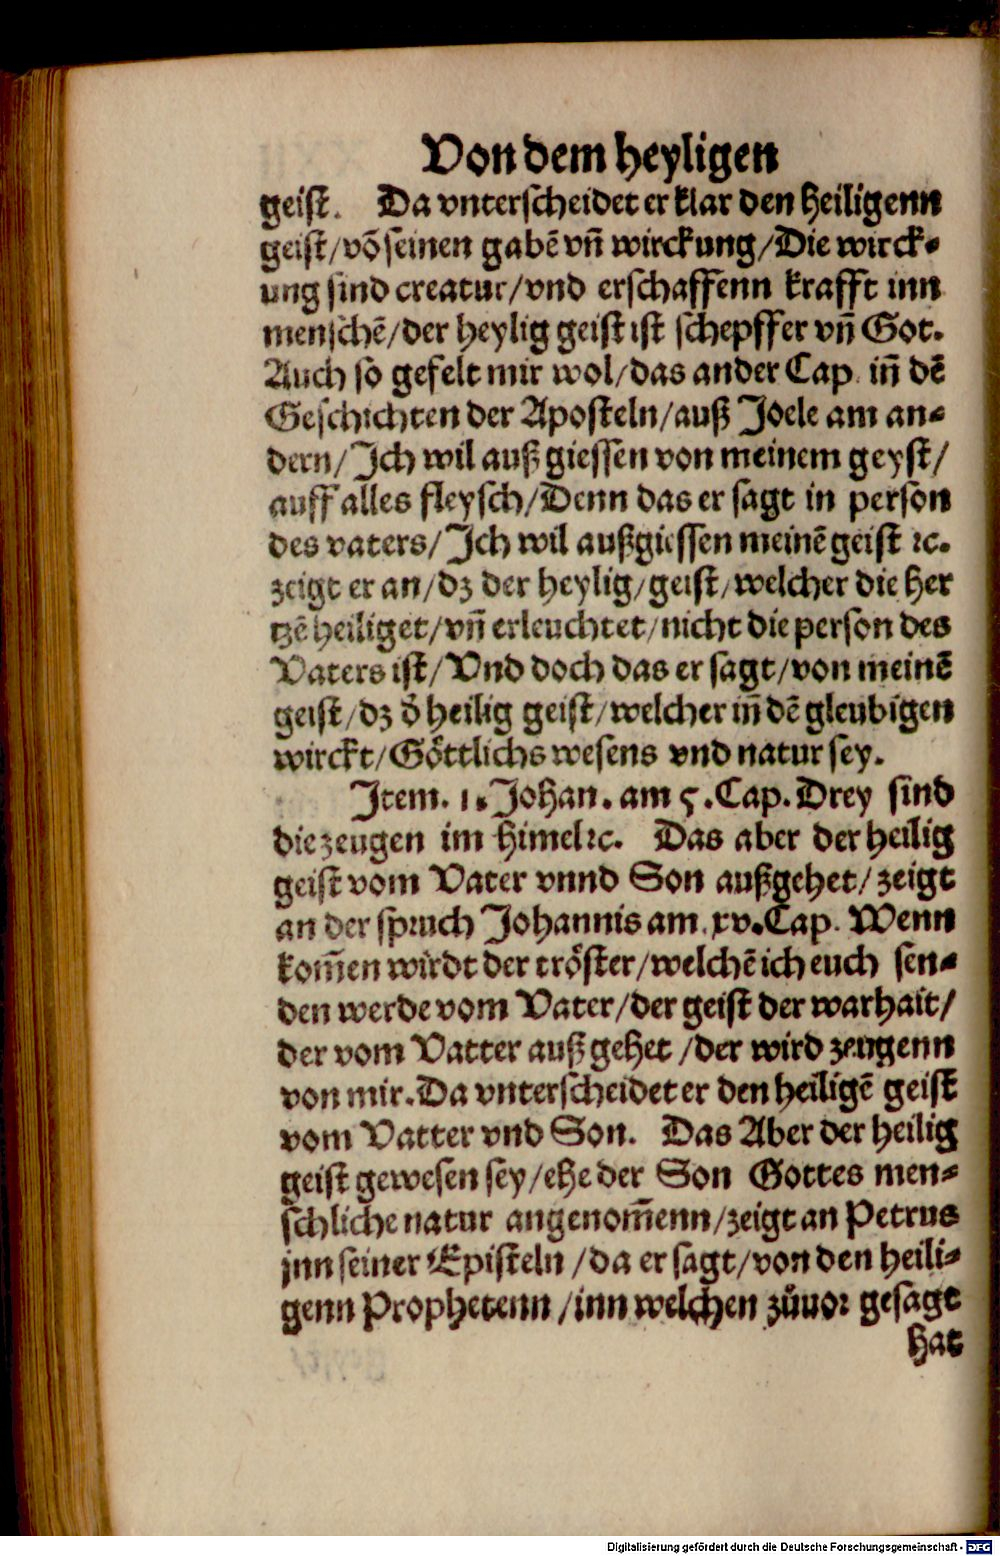 Von dem heyligen
geist. Da vnterscheidet er klar den heiligenn
geist/võ seinen gabẽ vñ wirckung/Die wirck⸗
ung sind creatur/vnd erschaffenn krafft inn
menschẽ/der heylig geist ist schepffer vñ Got.
Auch so gefelt mir wol/das ander Cap. iñ dẽ
Geschichten der Aposteln/auß Joele am an⸗
dern/Ich wil auß giessen von meinem geyst/
auff alles fleysch/Denn das er sagt in person
des vaters/Ich wil außgiessen meinẽ geist ꝛc.
zeigt er an/dz der heylig/geist/welcher die her
tzẽ heiliget/vñ erleuchtet/nicht die person des
Vaters ist/Vnd doch das er sagt/von meinẽ
geist/dz õ heilig geist/welcher iñ dẽ gleubigen
wirckt/Göttlichs wesens vnd natur sey.
Item. 1. Johan. am 5. Cap. Drey sind
die zeugen im himel ꝛc. Das aber der heilig
geist vom Vater vnnd Son außgehet/zeigt
an der spruch Johannis am. xv. Cap. Wenn
kom̃en wirdt der tröster/welchẽ ich euch sen⸗
den werde vom Vater/der geist der warhait/
der vom Vatter auß gehet/der wird zeugenn
von mir. Da vnterscheidet er den heiligẽ geist
vom Vatter vnd Son. Das Aber der heilig
geist gewesen sey/ehe der Son Gottes men⸗
schliche natur angenom̃enn/zeigt an Petrus
jnn seiner Episteln/da er sagt/von den heili⸗
genn Prophetenn/inn welchen zůuor gesagt
hat
Digitalisierung gefördert durch die Deutsche Forschungsgemeinschaft - DFG